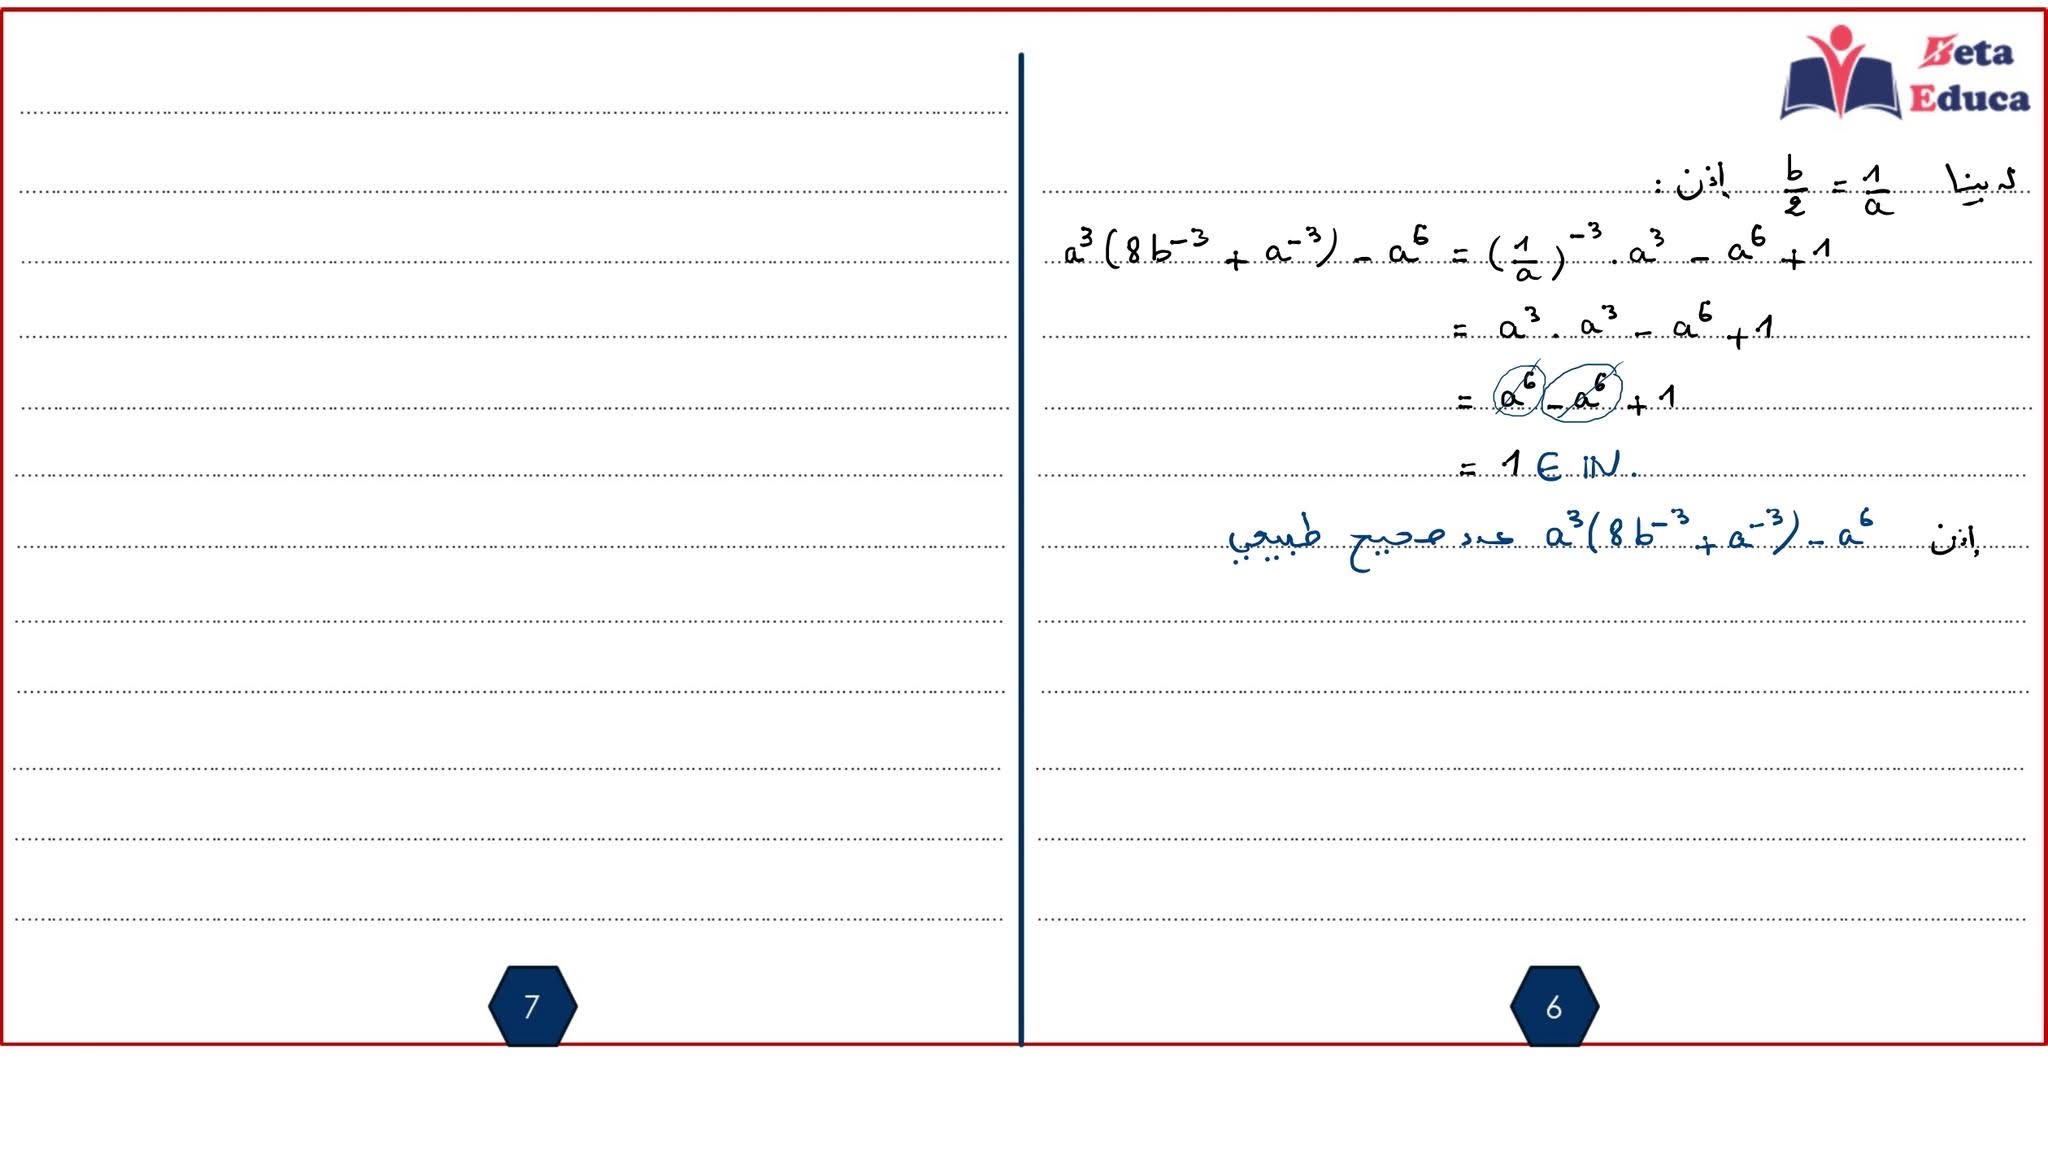 Beta
Educa
لدينا b/2 = 1/a إذن :
a³(8b⁻³ + a⁻³) - a⁶ = (1/a)⁻³ . a³ - a⁶ + 1
= a³ . a³ - a⁶ + 1
= a⁶ - a⁶ + 1
= 1 ∈ IN.
إذن a³(8b⁻³ + a⁻³) - a⁶ عدد صحيح طبيعي
6
7